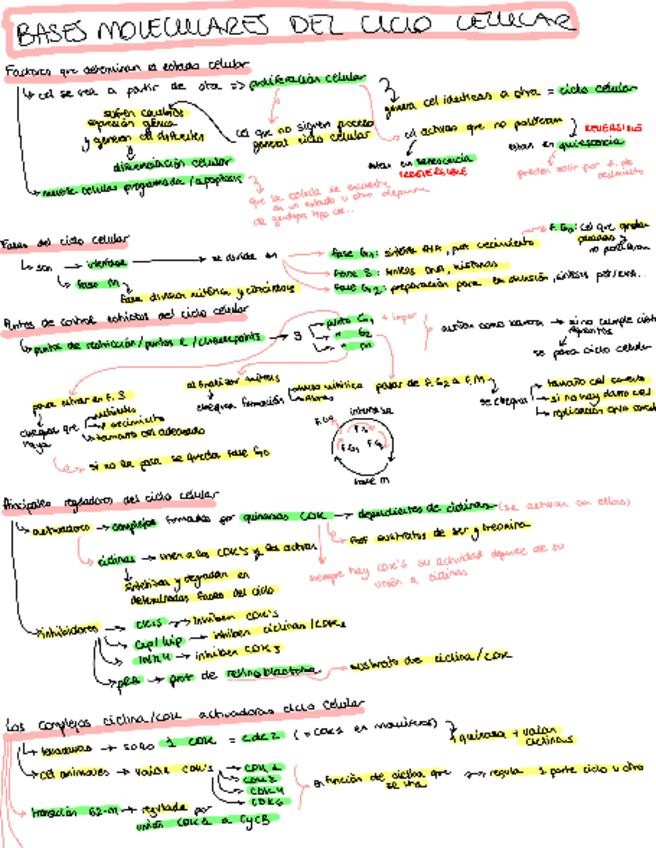 BASES MOLECULARES DEL CICLO CELULAR
Factores que determinan el estado celular
cel se crea a partir de otra => proliferación celular
genera cel identicas a otra = ciclo celular
sufren cambios
expresión génica
y generan cel diferentes
diferenciación celular
cel que no siguen proceso
general ciclo celular
cel activas que no proliferan
están en senescencia
IRREVERSIBLE
REVERSIBLE
están en quiescencia
pueden salir por f. de
crecimiento
muerte celular programada / apoptosis
que la célula se encuentre
en un estado u otro
Fases del ciclo celular
son → interfase → se divide en
fase G1: síntesis RNA, prot crecimiento
F. G0: cel que
no proliferan
Fase S: síntesis DNA, histonas
Fase G2: preparación para la división, síntesis proteínas...
fase M
fase división mitótica y citocinesis
Puntos de control del ciclo celular
puntos de restricción / puntos R / checkpoints → 3
punto G1 + impor
" G2
" M
actúan como barrera → si no cumple ciertos
se para ciclo celular
para entrar en F. S
chequea que haya
nutrientes
f crecimiento
tamaño cel adecuado
si no la para se queda fase G0
al finalizar mitosis
chequea formación
pasar de F. G2 a F. M
se chequea
tamaño cel correcto
si no hay daño cel
replicación DNA
interfase
F. G0
F. S
F. G1
F. G2
Fase M
Principales reguladores del ciclo celular
activadores → complejos formados por quinasas CDK → dependientes de ciclinas (se activan con ellas)
sustratos de ser y treonina
ciclinas → unen a las CDK's y las activan
sintetizan y degradan en
determinadas fases del ciclo
siempre hay CDK's su actividad depende de su
unión a ciclinas
inhibidores → CKIS → inhiben CDK's
Cip/Kip → inhiben ciclinas/CDKs
INK4 → inhiben CDK's
pRB → prot de retinoblastoma
sustrato de ciclina/CDK
Los complejos ciclina/CDK activadores ciclo celular
levaduras → solo 1 CDK = Cdc2 (= CDK1 en mamíferos)
1 quinasa + varias
ciclinas
cel animales → varias CDK's
CDK 1
CDK 2
CDK 4
CDK 6
en función de ciclina que
se una
regula 1 parte ciclo u otra
transición G2-M → regulada por
unión CDK1 a CycB